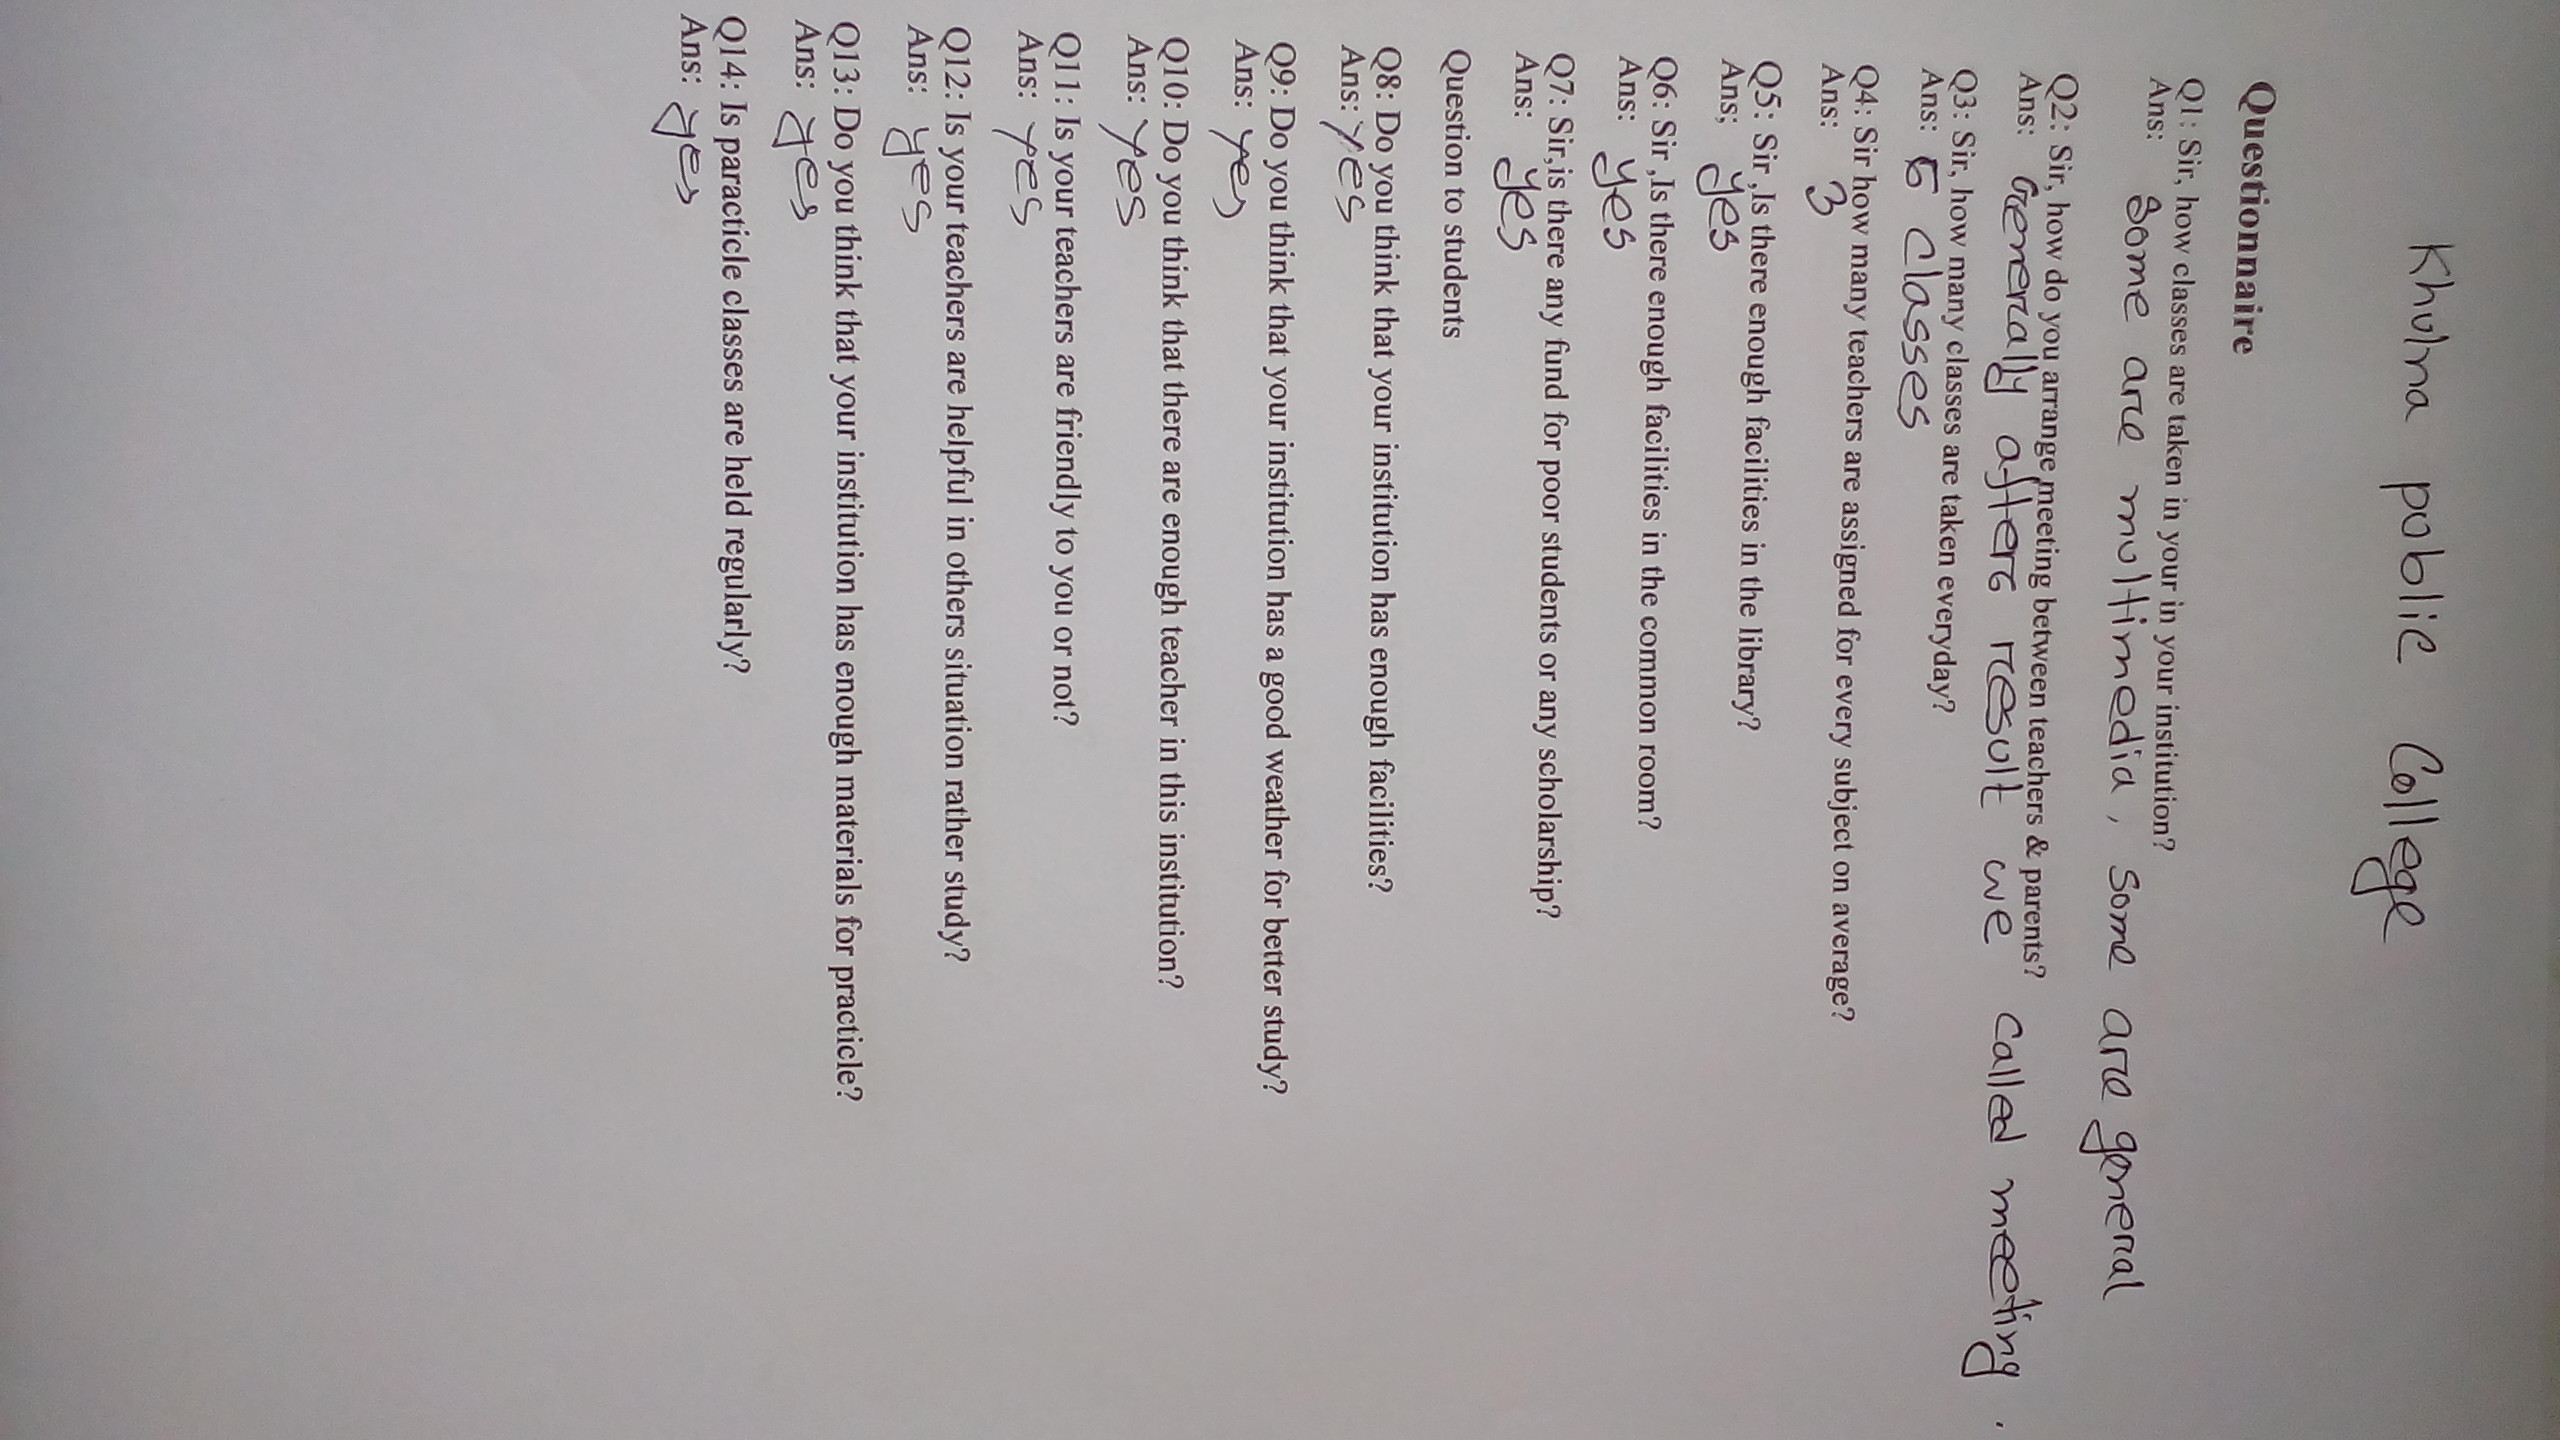 Khulna public College
Questionnaire
Q1: Sir, how classes are taken in your in your institution?
Ans: Some are multimedia, some are general
Q2: Sir, how do you arrange meeting between teachers & parents?
Ans: Generally after result we called meeting.
Q3: Sir, how many classes are taken everyday?
Ans: classes
Q4: Sir how many teachers are assigned for every subject on average?
Ans: 3
Q5: Sir ,Is there enough facilities in the library?
Ans; yes
Q6: Sir ,Is there enough facilities in the common room?
Ans: yes
Q7: Sir,is there any fund for poor students or any scholarship?
Ans: yes
Question to students
Q8: Do you think that your institution has enough facilities?
Ans: yes
Q9: Do you think that your institution has a good weather for better study?
Ans: yes
Q10: Do you think that there are enough teacher in this institution?
Ans: yes
Q11: Is your teachers are friendly to you or not?
Ans: yes
Q12: Is your teachers are helpful in others situation rather study?
Ans: yes
Q13: Do you think that your institution has enough materials for practicle?
Ans: yes
Q14: Is paracticle classes are held regularly?
Ans: yes